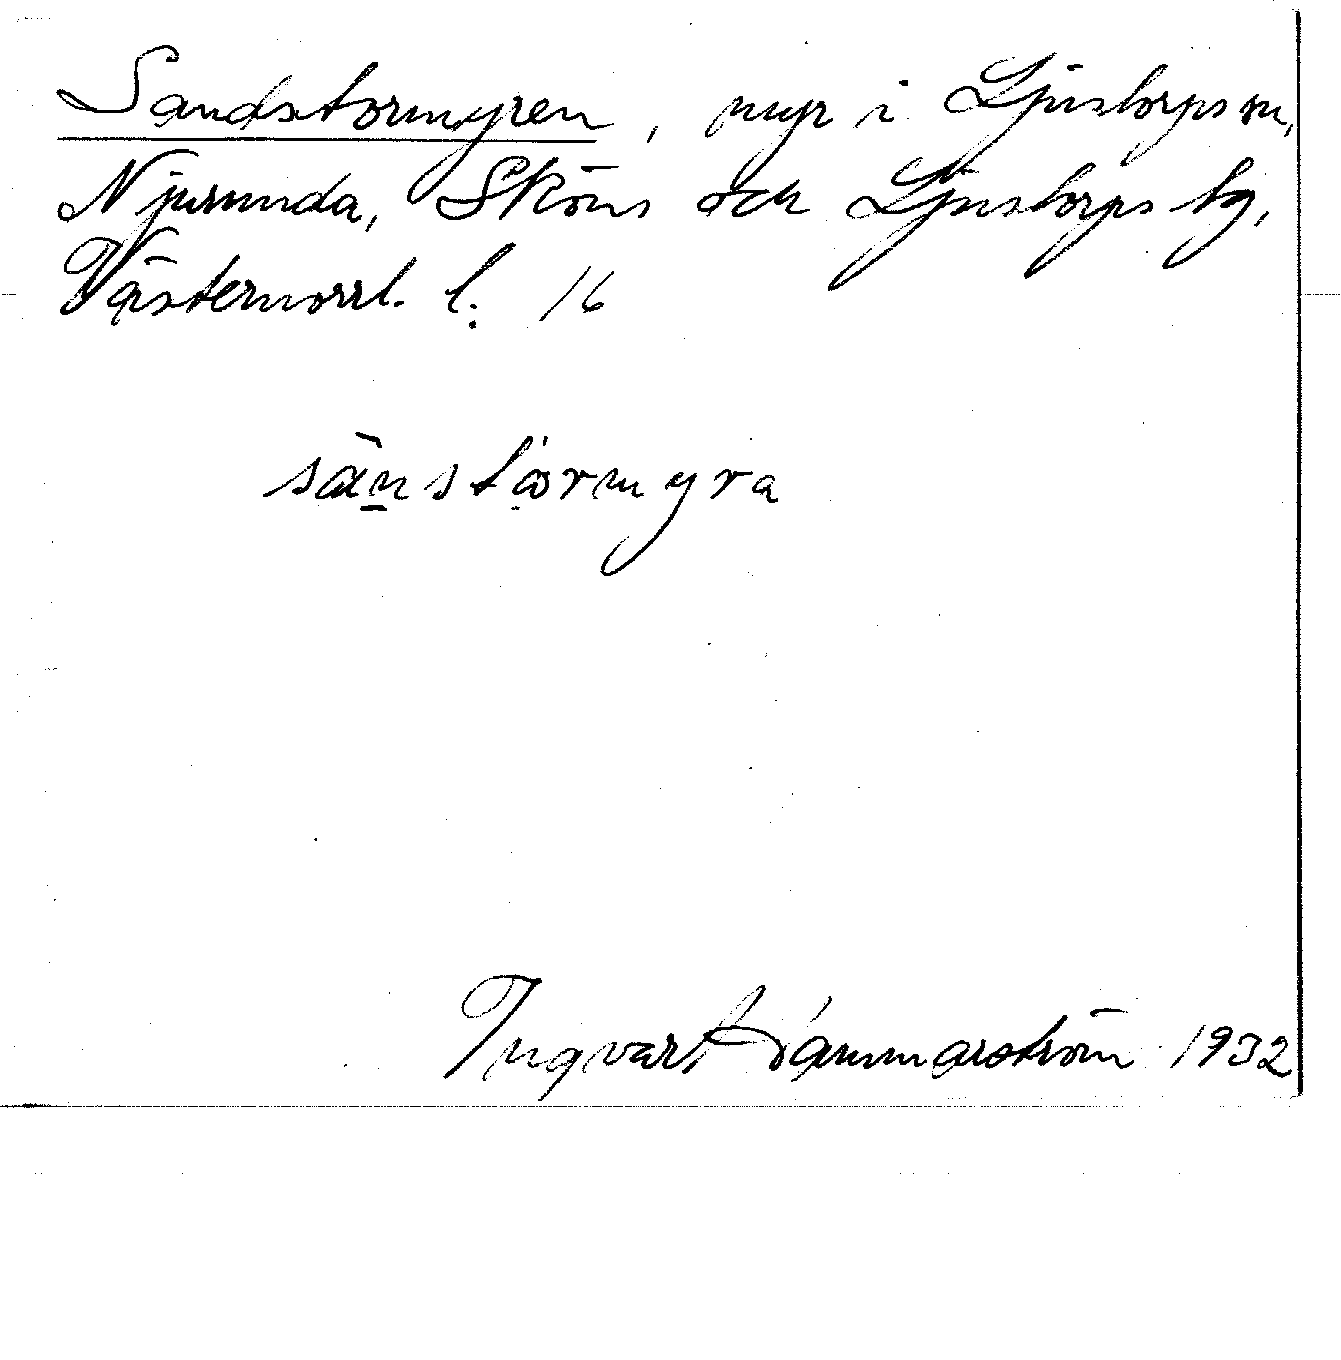 Sandstormyren, myr i Ljustorps sn,
Njurunda, Sköns och Ljustorps tg,
Västernorrl. l. 16
sänstårmyra
Ingvar Hammarström 1932